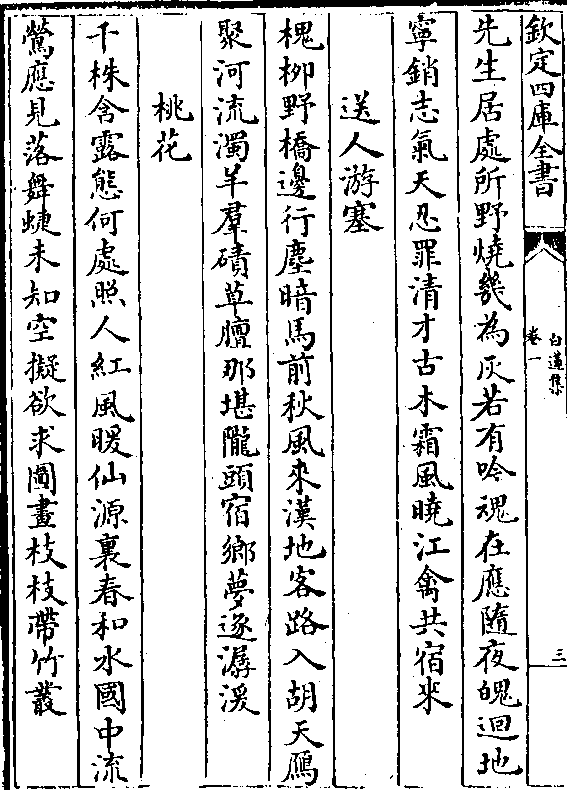 欽定四庫全書
白蓮集
卷一
三
先生居處所野燒㡬為灰若有吟魂在應隨夜魄迴地
寧銷志氣天忍罪清才古木霜風曉江禽共宿来
送人游塞
槐栁野橋邊行塵暗馬前秋風来漢地客路入胡天鴈
聚河流濁羊羣磧草膻那堪隴頭宿鄉夢逐潺湲
桃花
千株含露態何處照人紅風暖仙源裏春和水國中流
鶯應見落舞蜨未知空擬欲求圖畫枝枝帶竹叢